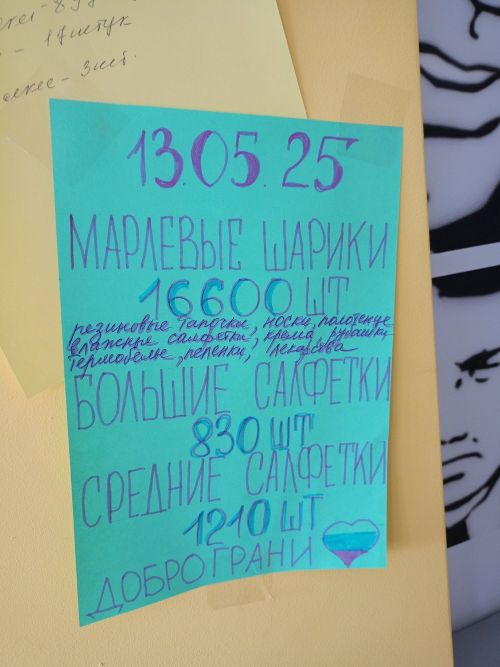 - 17штук
- 3шт.
13.05.25
МАРЛЕВЫЕ ШАРИКИ
16600 ШТ
резиновые тапочки, носки, полотенце
влажные салфетки, крема, рубашки
термобелье, пеленки, лекарства
БОЛЬШИЕ САЛФЕТКИ
830 ШТ
СРЕДНИЕ САЛФЕТКИ
1210 ШТ
ДОБРОГРАНИ